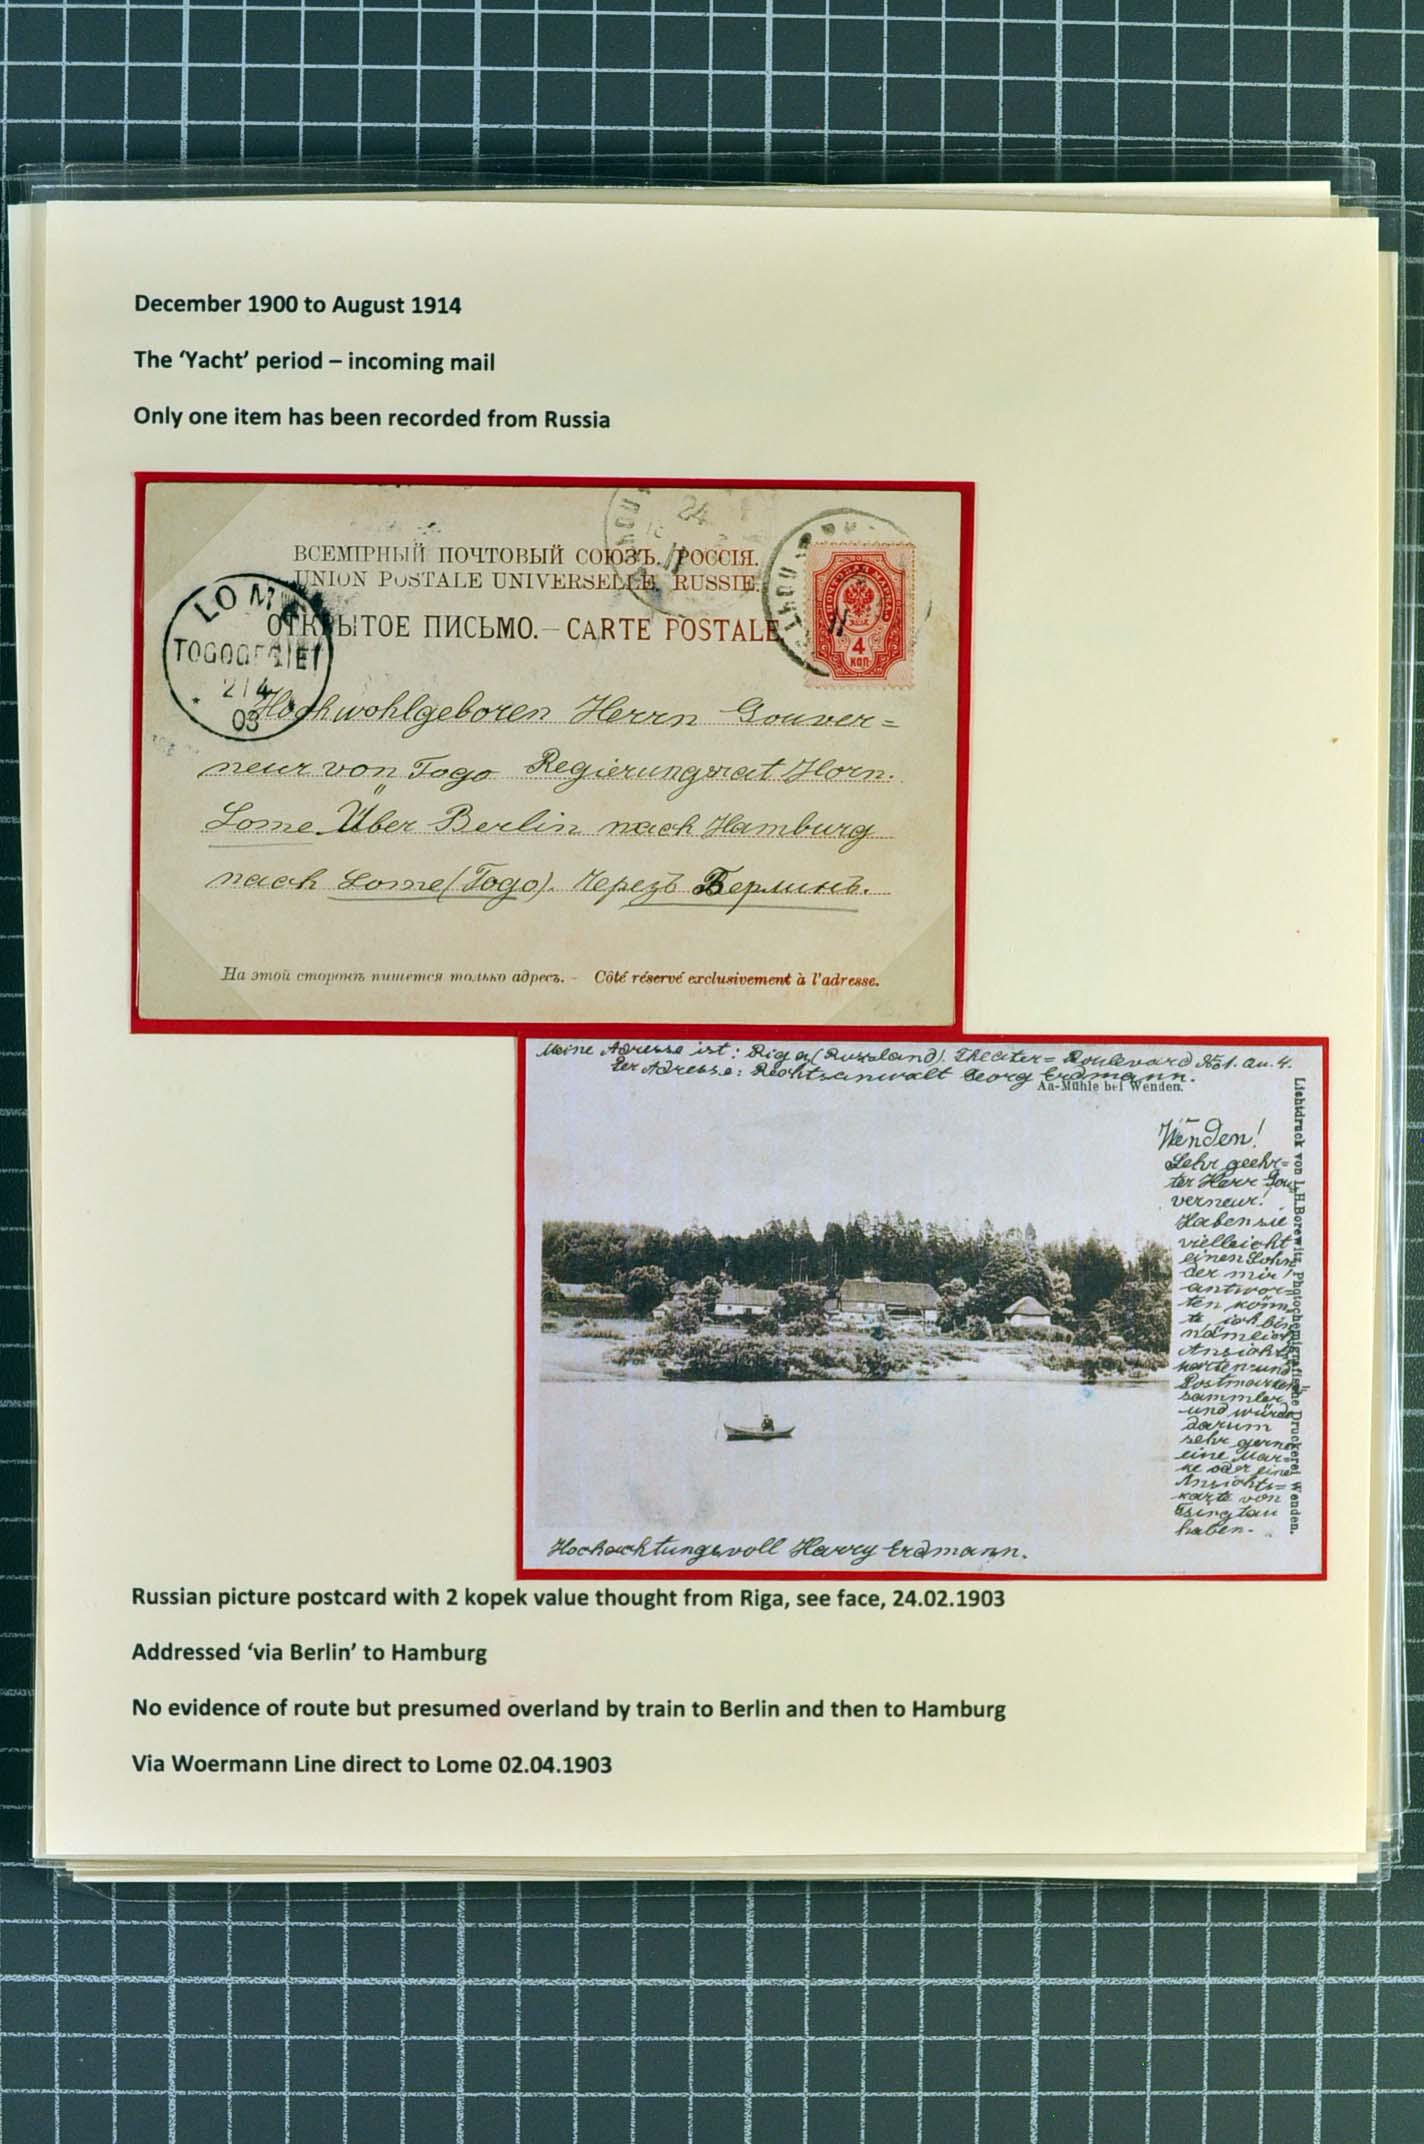 December 1900 to August 1914
The ‘Yacht’ period – incoming mail
Only one item has been recorded from Russia
24
ВСЕМІРНЫЙ ПОЧТОВЫЙ СОЮЗЪ. РОССІЯ.
UNION POSTALE UNIVERSELLE. RUSSIE.
ОТКРЫТОЕ ПИСЬМО. – CARTE POSTALE
ПОЧТОВАЯ МАРКА
4
КОП.
LOME
TOGOGEBIET
2/4
03
Hochwohlgeboren Herrn Gouver=
neur von Togo Regierungsrat Horn.
Lome Über Berlin nach Hamburg
nach Lome (Togo). Черезъ Берлинъ.
На этой сторонѣ пишется только адресъ. – Côté réservé exclusivement à l'adresse.
Meine Adresse ist: Riga (Russland). Theater= Boulevard No 1. Qu. 4.
Per Adresse: Rechtsanwalt Georg Erdmann.
Aa-Mühle bei Wenden.
Lichtdruck von L.H. Borewitz, Photochemigrafische Druckerei Wenden.
Wenden!
Sehr geehr=
ter Herr Gou
verneur!
Haben sie
vielleicht
einen Sohn
der mir
antwor=
ten könn
te, ich bin
nämlich
Ansichts
karten und
Postmarken
sammler
und würde
darum
sehr gerne
eine Mar=
ke oder eine
Ansichts=
karte von
Tsingtau
haben.
Hochachtungsvoll Harry Erdmann.
Russian picture postcard with 2 kopek value thought from Riga, see face, 24.02.1903
Addressed ‘via Berlin’ to Hamburg
No evidence of route but presumed overland by train to Berlin and then to Hamburg
Via Woermann Line direct to Lome 02.04.1903